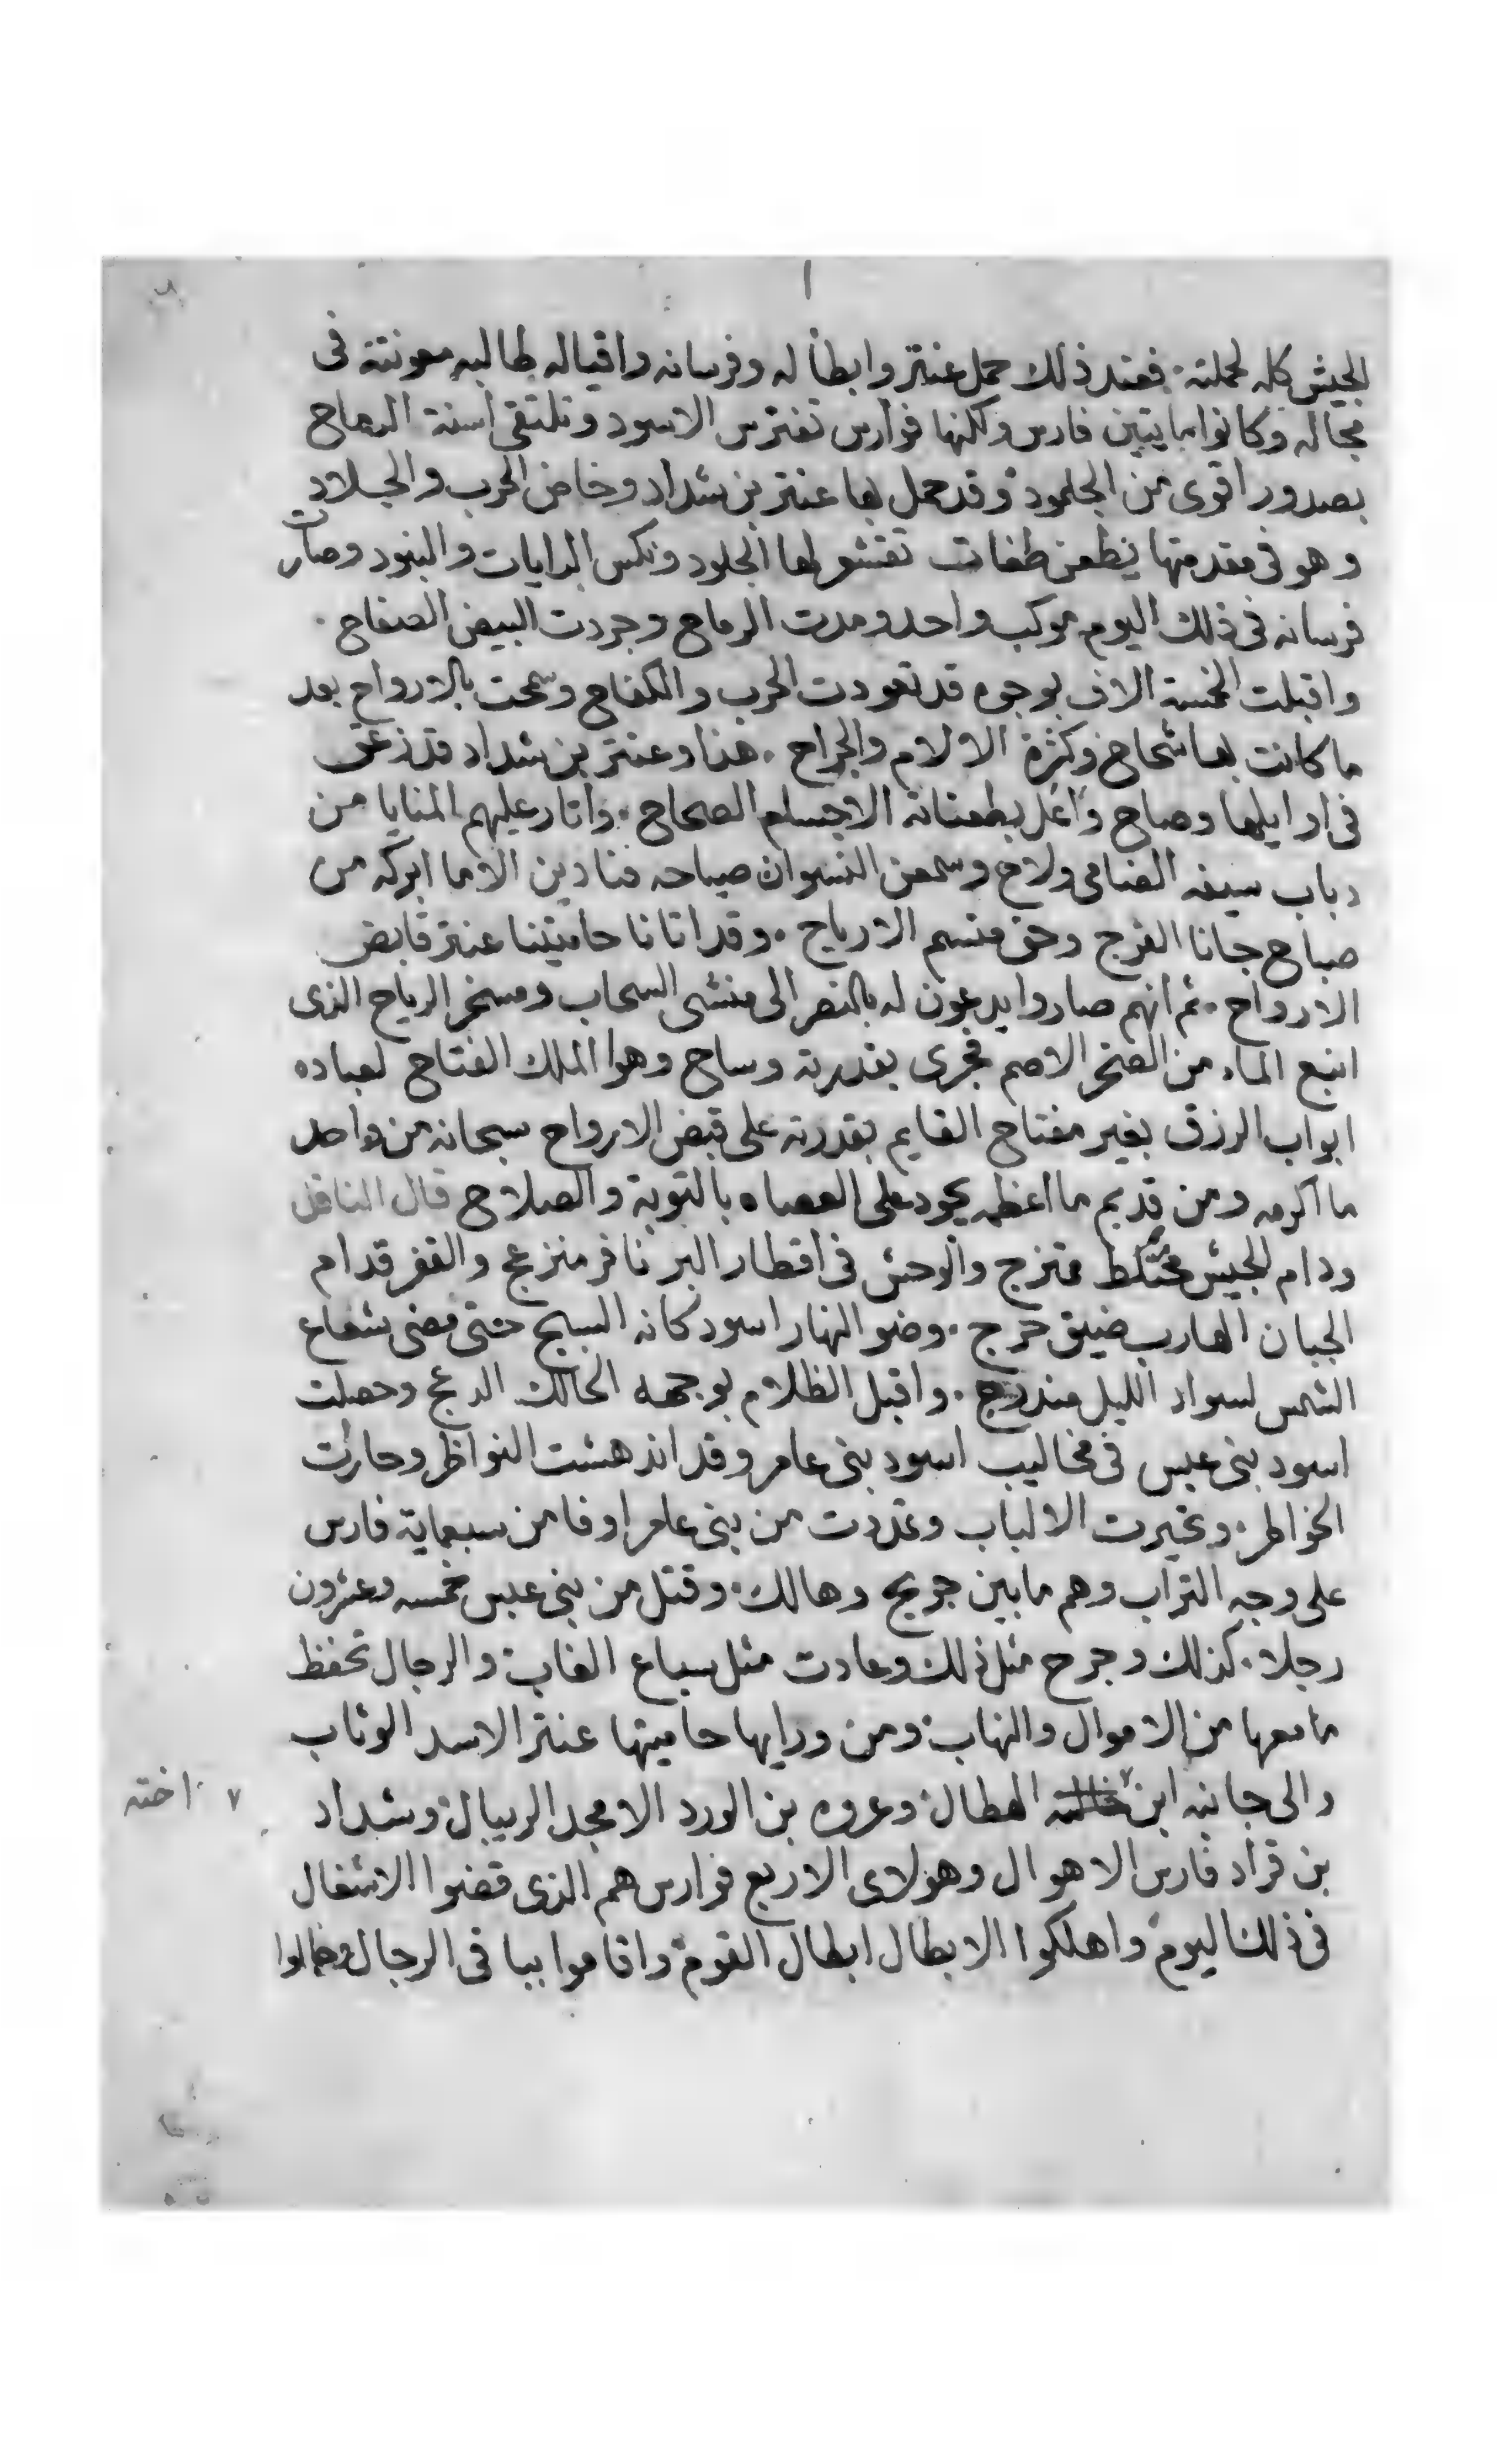 الجيش كله لحملته. فعند ذلك حمل عنتر وابطاله وفرسانه واقياله طالبه معونته فى
مجاله وكانوا مايتين فارس ولكنها فوارس تفترس الاسود وتلتقى اسنة الرماح
بصدور اقوى من الجلمود وقد حمل بها عنتر بن شداد وخاض الحرب والجلاد
وهو فى مقدمتها يطعن طعنات تقشعر لها الجلود ونكس الرايات والبنود وصارت
فرسانه فى ذلك اليوم موكب واحد ومدت الرماح وجردت البيض الصفاح.
واقبلت الخمسة الاف بوجوه قد تعودت الحرب والكفاح وسمحت بالارواح بعد
ما كانت بها شحاح وكثرة الالام والجراح. هذا وعنتر بن شداد قد زعق
فى اوايلها وصاح واعل بطعناته الاجسام الصحاح. واثار عليهم المنايا من
دباب سيفه الضامى ولاح وسمعن النسوان صياحه فنادين الاما ابركه من
صباح جانا الفرج وحق منسم الارياح. وقد اتانا حاميتنا عنتر قابض
الارواح. ثم انهم صاروا يدعون له بالنصر الى منشى السحاب ومسخر الرياح الذى
انبع الماء من الصخر الاصم فجرى بقدرته وساح وهوا الملك الفتاح لعباده
ابواب الرزق بغير مفتاح القايم بقدرته على قبض الارواح سبحانه من واحد
ما اكرمه ومن قديم ما اعظمه يجود على العصاه بالتوبة والصلاح قال الناقل
ودام الجيش مختلط ممتزج والوحش فى اقطار البر نافر منزعج والقفر قدام
الجبان الهارب ضيق حرج. وضو النهار اسود كانه السبج حتى مضى شعاع
الشمس لسواد الليل مندرج. واقبل الظلام بوجهه الحالك الدعج وحصلت
اسود بنى عبس فى مخاليب اسود بنى عامر وقد اندهشت النواظر وحارت
الخواطر. وتحيرت الالباب وتمددت من بنى عامر اوفا من سبعماية فارس
على وجه التراب وهم مابين جريح وهالك. وقتل من بنى عبس خمسه وعشرون
رجلا. كذلك وجرح مثل ذلك وعادت مثل سباع الغاب والرجال تحفظ
ما معها من الاموال والنهاب ومن ورايها حاميتها عنتر الاسد الوثاب
والى جانبه ابن ٧ الهطال وعروه بن الورد الامجد الريبال وشداد
٧ اخته
بن قراد فارس الاهوال وهولاى الاربع فوارس هم الذى قضوا الاشغال
فى ذلك اليوم واهلكوا الابطال ابطال القوم واقاموا بباقى الرجال